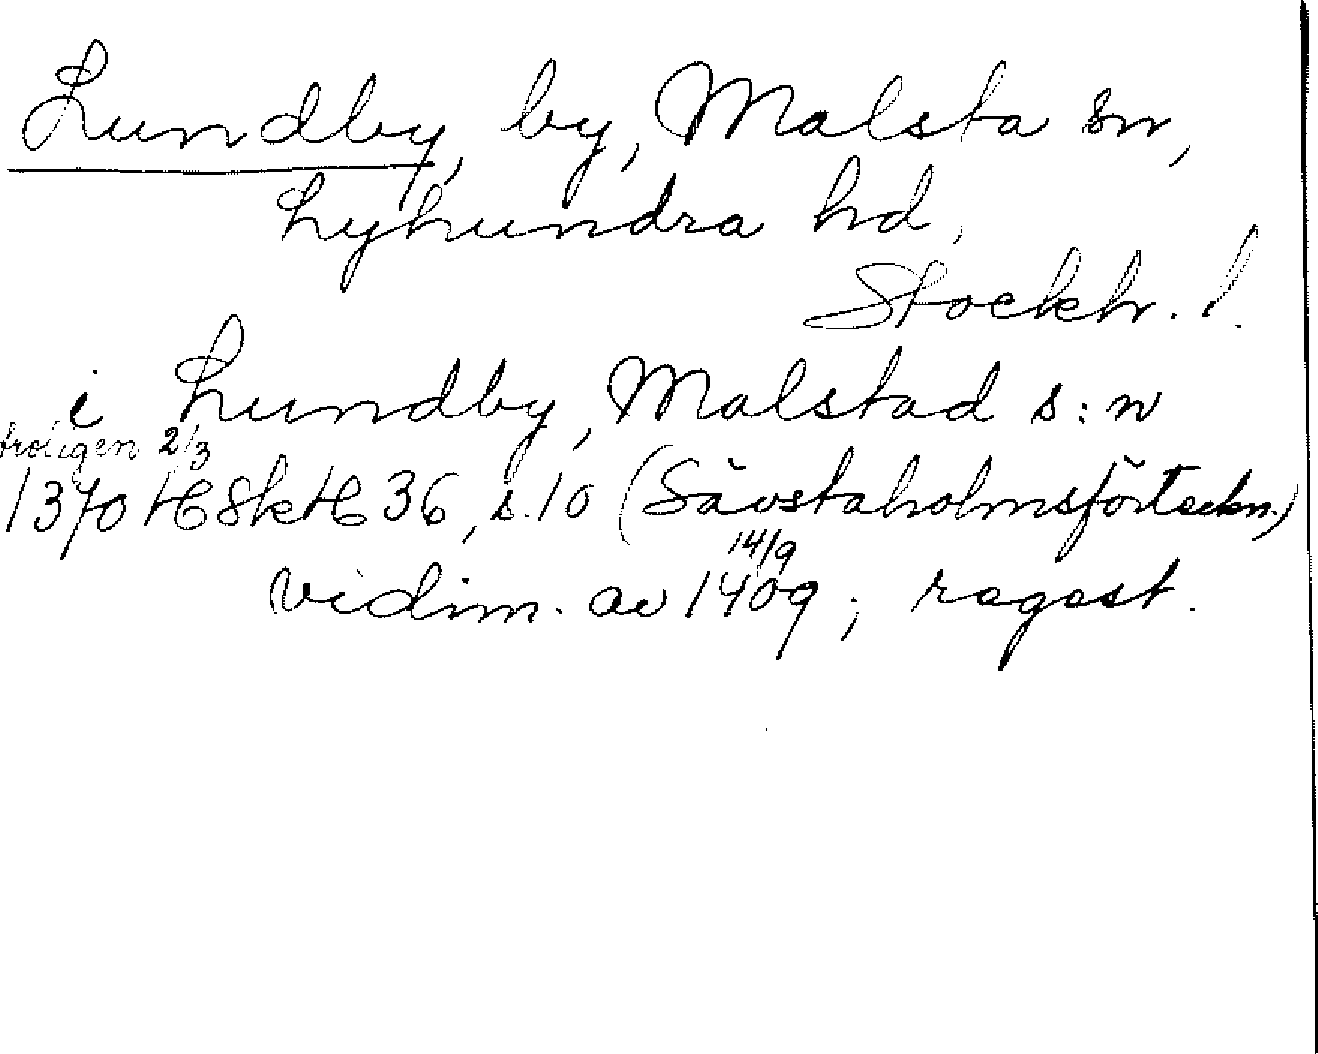 Lundby, by, Malsta sn,
Lyhundra hd,
Stockh. l.
i Lundby, Malstad s:n
troligen 2/3
1370 HSkH 36, s. 10 (Sävstaholmsförteckn.)
14/9
vidim. av 1409; regest.